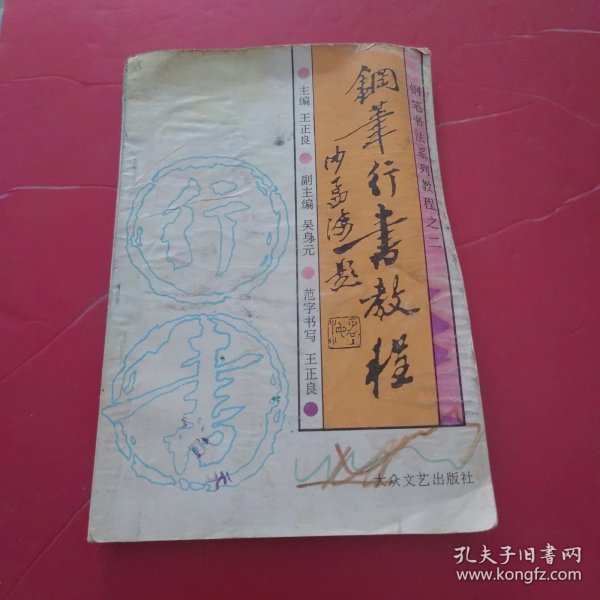 钢笔书法系列教程之二
鋼筆行書教程
沙孟海題
主编 王正良 副主编 吴身元 范字书写 王正良
行
書
大众文艺出版社
孔夫子旧书网
www.kongfz.com